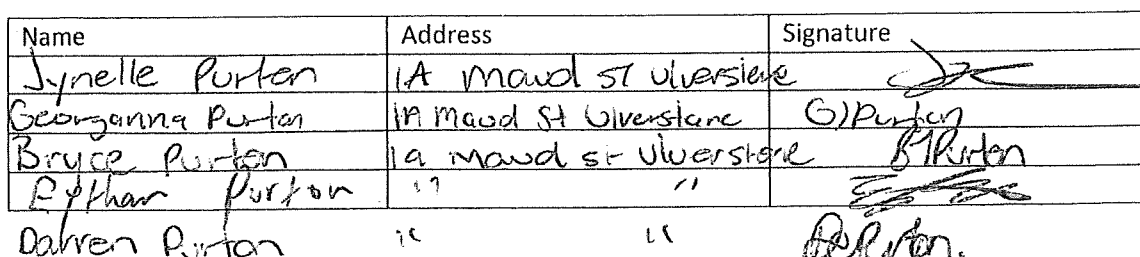 Name Address Signature
Jynelle Purton 1A Maud ST Ulverstone
Georganna Purton 1A Maud St Ulverstone G)Purton
Bryce Purton 1a Maud st Ulverstone B Purton
Eythan Purton " "
Darren Purton " " Purton.